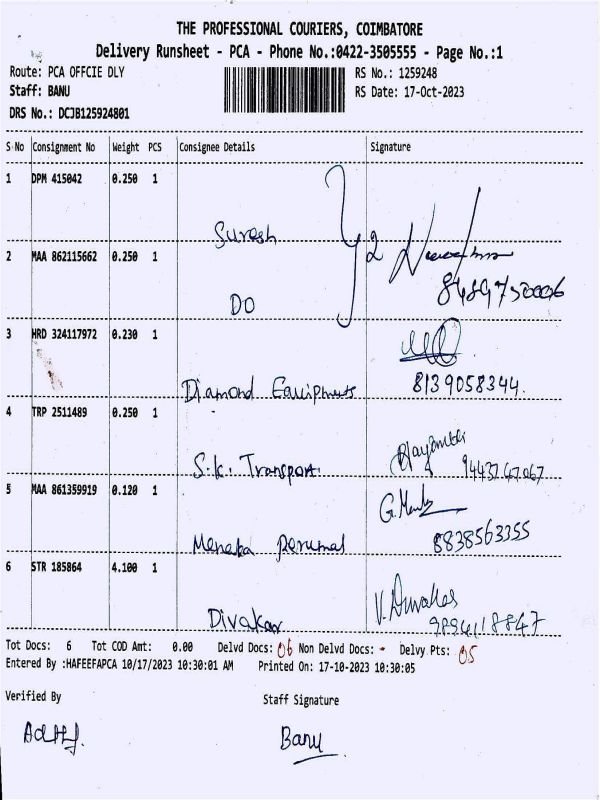 THE PROFESSIONAL COURIERS, COIMBATORE
Delivery Runsheet - PCA - Phone No.:0422-3505555 - Page No.:1
Route: PCA OFFCIE DLY RS No.: 1259248
Staff: BANU RS Date: 17-Oct-2023
DRS No.: DCJB125924801
S No Consignment No Weight PCS Consignee Details Signature
1 DPM 415042 0.250 1
Suresh
2 MAA 862115662 0.250 1
DO
3 HRD 324117972 0.230 1
Diamond Equipments 8139058344.
4 TRP 2511489 0.250 1
S.K. Transport.
5 MAA 861359919 0.120 1
Menaka Perumal 8838563355
6 STR 185864 4.100 1
V. Divakar
Divakar 9894118847
Tot Docs: 6 Tot COD Amt: 0.00 Delvd Docs: 06 Non Delvd Docs: - Delvy Pts: 05
Entered By :HAFEEFAPCA 10/17/2023 10:30:01 AM Printed On: 17-10-2023 10:30:05
Verified By Staff Signature
Banu